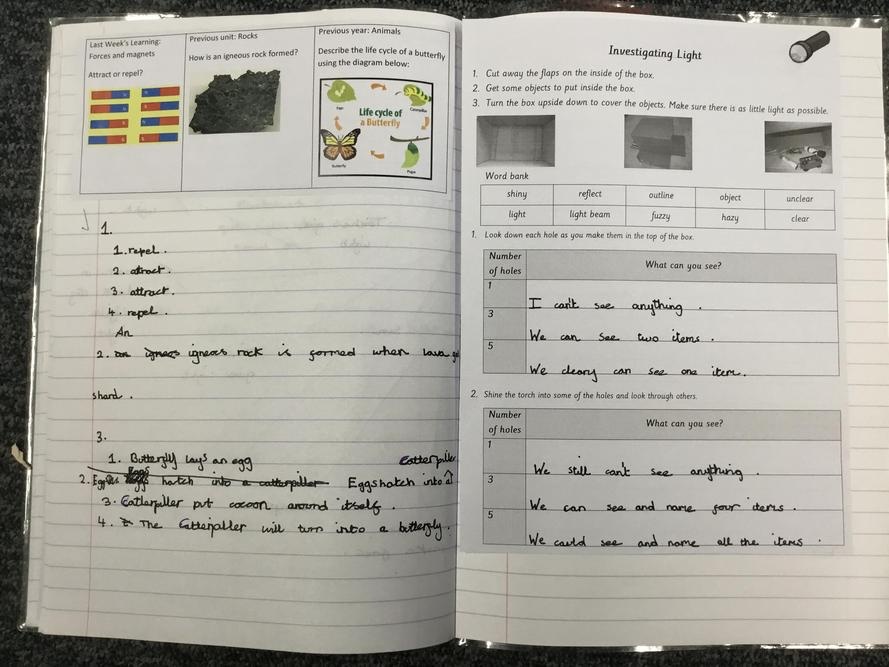 Last Week's Learning:
Forces and magnets
Attract or repel?
Previous unit: Rocks
How is an igneous rock formed?
Previous year: Animals
Describe the life cycle of a butterfly
using the diagram below:
Life cycle of
a Butterfly
Caterpillar
Pupa
Butterfly
1.
1. repel.
2. attract.
3. attract.
4. repel.
An
2. an igneos igneous rock is formed when lava
shard.
3.
1. Butterfly lays an egg
Catterpiller
2. Eggs hatch into a catterpiller Eggs hatch into a
3. Catterpiller put cocoon around itself.
4. The Catterpiller will turn into a butterfly.
Investigating Light
1. Cut away the flaps on the inside of the box.
2. Get some objects to put inside the box.
3. Turn the box upside down to cover the objects. Make sure there is as little light as possible.
Word bank
shiny reflect outline object unclear
light light beam fuzzy hazy clear
1. Look down each hole as you make them in the top of the box.
Number
of holes
What can you see?
1
I can't see anything.
3
We can see two items.
5
We cleary can see one item.
2. Shine the torch into some of the holes and look through others.
Number
of holes
What can you see?
1
We still can't see anything.
3
We can see and name four items.
5
We could see and name all the items.